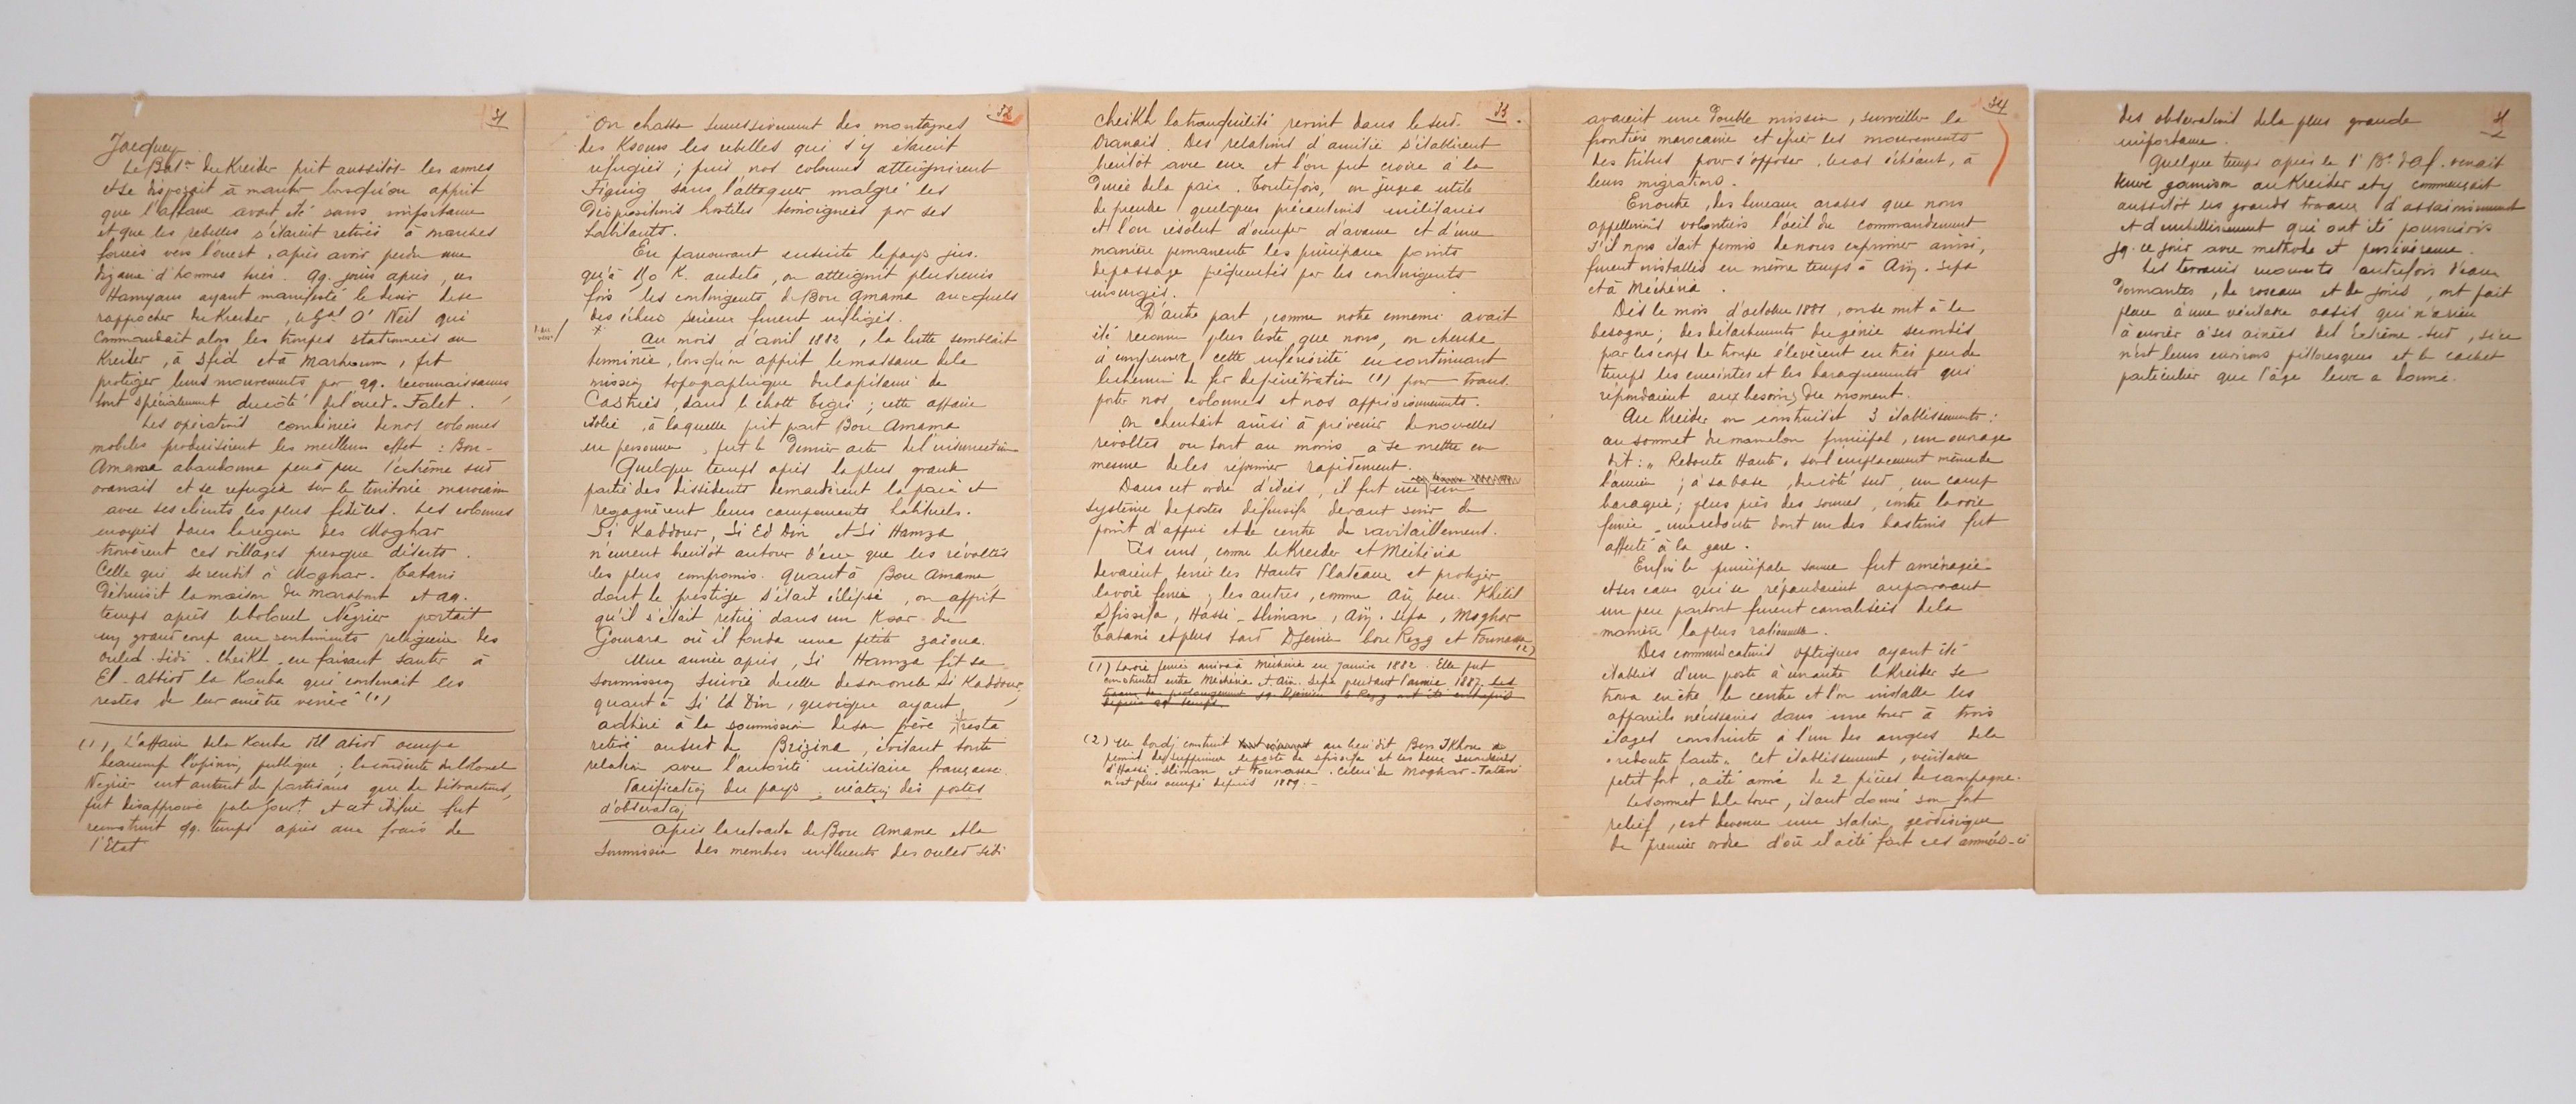 51
Jacquey.
Le Bat.ⁿ du Kreider prit aussitôt les armes
et se disposait à marcher lorsqu'on apprit
que l'affaire avait été sans importance
et que les rebelles s'étaient retirés à marches
forcées vers l'ouest, après avoir perdu une
dizaine d'hommes tués. qq. jours après, les
Hamyans ayant manifesté le désir de se
rapprocher du Kreider, le Gal O' Neil qui
commandait alors les troupes stationnées au
Kreider, à Sfid et à Marhoum, fit
protéger leurs mouvements par qq. reconnaissances
tout spécialement du côté de l'oued-Falet.
Les opérations combinées de nos colonnes
mobiles produisirent les meilleurs effet : Bou-
Amama abandonna peu à peu l'extrême sud
oranais et se réfugia sur le territoire marocain
avec ses clients les plus fidèles. Les colonnes
envoyées dans la région des Moghar
trouvèrent ces villages presque déserts.
Celle qui se rendit à Moghar-Tatani
détruisit la maison du marabout et qq.
temps après le colonel Négrier portait
un grand coup aux sentiments religieux des
Ouled-Sidi-Cheikh en faisant sauter à
El-Abiod la Kouba qui contenait les
restes de leur ancêtre vénéré (1)
(1) L'affaire de la Kouba d'El abiod occupa
beaucoup l'opinion publique ; la conduite du colonel
Négrier eut autant de partisans que de détracteurs,
fut désapprouvée par le Gouvt. et cet édifice fut
reconstruit qq. temps après aux frais de
l'Etat
52
On chassa successivement des montagnes
des Ksours les rebelles qui s'y étaient
réfugiés ; puis nos colonnes atteignirent
Figuig sans l'attaquer malgré les
dispositions hostiles témoignées par ses
habitants.
En parcourant ensuite le pays jus-
qu'à 110 K. au delà, on atteignit plusieurs
fois les contingents de Bou Amama auxquels
des échecs sérieux furent infligés.
Au mois d'avril 1882, la lutte semblait
terminée, lorsqu'on apprit le massacre de la
mission topographique du capitaine de
Castries, dans le chott Tigri ; cette affaire
isolée, à laquelle prit part Bou Amama
en personne, fut le dernier acte de l'insurrection
Quelque temps après la plus grande
partie des dissidents demandèrent la paix et
regagnèrent leurs campements habituels.
Si Kaddour, Si Ed Din et Si Hamza
n'eurent bientôt autour d'eux que les révoltés
les plus compromis. Quant à Bou Amama,
dont le prestige s'était éclipsé, on apprit
qu'il s'était retiré dans un Ksar du
Gourara où il fonda une petite zaouia.
Une année après, Si Hamza fit sa
soumission suivie de celle de son oncle Si Kaddour,
quant à Si Ed Din, quoique ayant
adhéré à la soumission de son frère, il resta
retiré au sud de Brizina, évitant toute
relation avec l'autorité militaire française.
Pacification du pays ; création des postes
d'observation
Après la retraite de Bou Amama et la
soumission des membres influents des Ouled Sidi
53
Cheikh la tranquilité revint dans le sud-
oranais. Des relations d'amitié s'établirent
bientôt avec eux et l'on put croire à la
durée de la paix. Toutefois, on jugea utile
de prendre quelques précautions militaires
et l'on résolut d'occuper d'avance et d'une
manière permanente les principaux points
de passage fréquentés par les contingents
insurgés.
D'autre part, comme notre ennemi avait
été reconnu plus leste que nous, on chercha
à compenser cette infériorité en continuant
le chemin de fer de pénétration (1) pour trans-
porter nos colonnes et nos approvisionnements.
On cherchait ainsi à prévenir de nouvelles
révoltes ou tout au moins à se mettre en
mesure de les réprimer rapidement.
Dans cet ordre d'idées, il fut créé un
système de postes défensifs devant servir de
point d'appui et de centre de ravitaillement.
Les uns, comme le Kreider et Méchéria
devaient tenir les Hauts Plateaux et protéger
la voie ferrée ; les autres, comme Aïn ben Khélil
Sfissifa, Hassi-Sliman, Aïn-Sefra, Moghar
Tatani et plus tard Djenien bou Rezg et Founassa
(2)
(1) La voie ferrée arriva à Méchéria en janvier 1882. Elle fut
construite entre Méchéria et Aïn-Sefra pendant l'année 1887. Les
travaux de prolongement jq. Djenien b Rezg ont été entrepris
depuis qq temps.
(2) Un bordj construit au lieu dit Ben Ikhou a
permis de supprimer le poste de Sfissifa et les deux
d'Hassi-Sliman et Founassa. Celui de Moghar-Tatani
n'est plus occupé depuis 1889.-
54
avaient une double mission, surveiller la
frontière marocaine et épier les mouvements
des tribus pour s'opposer, le cas échéant, à
leurs migrations.
En outre, des bureaux arabes que nous
appellerions volontiers l'œil du commandement
s'il nous était permis de nous exprimer ainsi,
furent installés en même temps à Aïn-Sefra
et à Méchéria.
Dès le mois d'octobre 1881, on se mit à la
besogne ; des détachements du génie secondés
par les corps de troupe élevèrent en très peu de
temps les enceintes et les baraquements qui
répondaient aux besoins du moment.
Au Kreider on construisit 3 établissements :
au sommet du mamelon principal, un ouvrage
dit : "Redoute Haute" sur l'emplacement même de
l'ancien ; à sa base, du côté sud, un camp
baraqué ; plus près des sources, contre la voie
ferrée, une redoute dont un des bastions fut
affecté à la gare.
Enfin la principale source fut aménagée
et ses eaux qui se répandaient auparavant
un peu partout furent canalisées de la
manière la plus rationnelle.
Des communications optiques ayant été
établies d'un poste à un autre le Kreider se
trouva en être le centre et l'on installa les
appareils nécessaires dans une tour à trois
étages construite à l'un des angles de la
"redoute haute". Cet établissement, véritable
petit fort, a été armé de 2 pièces de campagne.
Le sommet de la tour, étant donné son fort
relief, est devenu une station géodésique
de premier ordre d'où il a été fait ces années-ci
des observations de la plus grande
importance.
Quelque temps après le 1er Bon d'Af. venait
tenir garnison au Kreider et y commençait
aussitôt les grands travaux d'assainissement
et d'embellissement qui ont été poursuivis
jq. ce jour avec méthode et persévérance.
Les terrains couverts autrefois d'eaux
dormantes, de roseaux et de joncs, ont fait
place à une véritable oasis qui n'a rien
à envier à ses aînées de l'Extrême-Sud, si ce
n'est leurs environs pittoresques et le cachet
particulier que l'âge leur a donné.